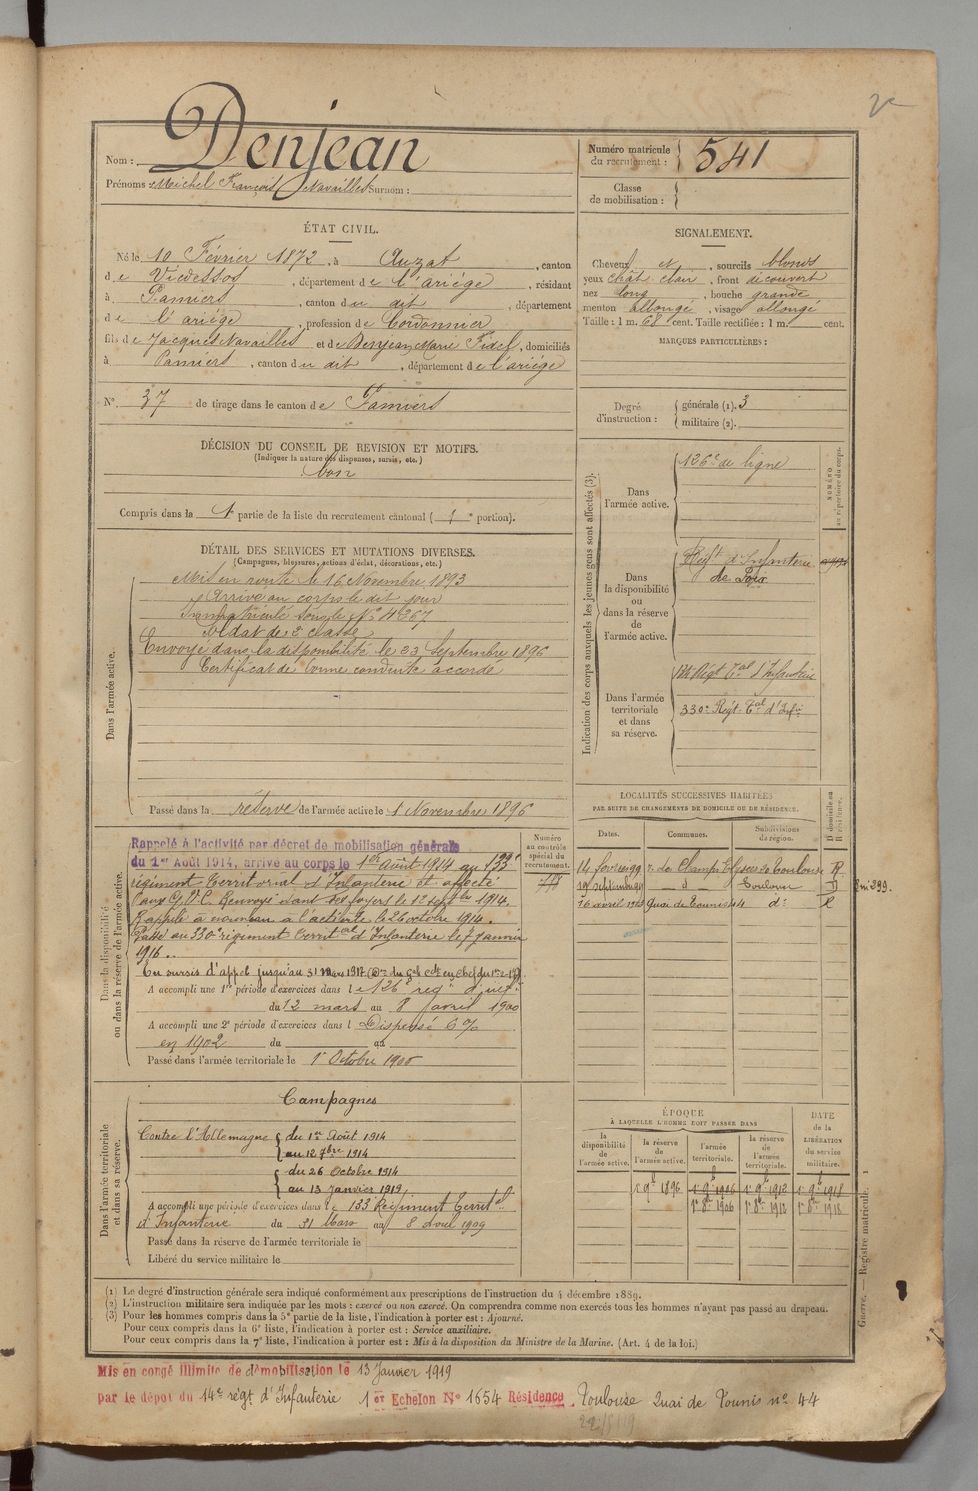 Nom : Denjean
Prénoms : Michel François Navailles Surnom :
Numéro matricule du recrutement : 541
Classe de mobilisation :
ÉTAT CIVIL.
Né le 10 Février 1872, à Auzat, canton
de Vicdessos, département de l'ariége, résidant
à Pamiers, canton du dit, département
de l'ariége, profession de Cordonnier
fils de Jacques Navailles et de Denjean Marie Fidel, domiciliés
à Pamiers, canton du dit, département de l'ariége
N° 37 de tirage dans le canton de Pamiers
SIGNALEMENT.
Cheveux et, sourcils blonds
yeux chât. clair, front découvert
nez long, bouche grande
menton allongé, visage allongé
Taille : 1 m. 68 cent. Taille rectifiée : 1 m. cent.
MARQUES PARTICULIÈRES :
Degré d'instruction : générale (1). 3
militaire (2).
DÉCISION DU CONSEIL DE REVISION ET MOTIFS.
(Indiquer la nature des dispenses, sursis, etc.)
bon
Compris dans la 1e partie de la liste du recrutement cantonal (1e portion).
DÉTAIL DES SERVICES ET MUTATIONS DIVERSES.
(Campagnes, blessures, actions d'éclat, décorations, etc.)
Dans l'armée active.
Mis en route le 16 Novembre 1893
Arrivé au corps le dit jour
Immatriculé sous le N° 4367
Soldat de 2e classe
Envoyé dans la disponibilité le 23 Septembre 1896
Certificat de bonne conduite accordé
Passé dans la réserve de l'armée active le 1 Novembre 1896
Indication des corps auxquels les jeunes gens sont affectés (3).
NUMÉRO au répertoire du corps.
Dans l'armée active.
126e de ligne
Dans la disponibilité ou dans la réserve de l'armée active.
Régt d'Infanterie
de Foix
Dans l'armée territoriale et dans sa réserve.
Régt Tal d'Infanterie
330e Régt Tal d'Infie
LOCALITÉS SUCCESSIVES HABITÉES
PAR SUITE DE CHANGEMENTS DE DOMICILE OU DE RÉSIDENCE.
Dates. Communes. Subdivisions de région. D domicile ou R résidence.
14 février 99 r. des Champs Elysées Toulouse R
19 septembre d° Toulouse D
16 avril Quai de Tounis 44 d° R
Dans la disponibilité ou dans la réserve de l'armée active.
Numéro au contrôle spécial du recrutement.
Rappelé à l'activité par décret de mobilisation générale
du 1er Août 1914, arrivé au corps le 1er Août 1914 au 133e
régiment Territorial d'Infanterie et affecté
aux G.V.C. Renvoyé dans ses foyers le 12 septbre 1914.
Rappelé à nouveau à l'activité le 26 octobre 1914.
Passé au 330e régiment territal d'Infanterie le 7 janvier
1916..
En sursis d'appel jusqu'au 31 Mars 1917
A accompli une 1re période d'exercices dans le 126e regt d'inf.
du 12 mars au 8 avril 1900
A accompli une 2e période d'exercices dans l Dispensé 6%
en 1902 du au
Passé dans l'armée territoriale le 1r Octobre 1906
Dans l'armée territoriale et dans sa réserve.
Campagnes
Contre l'Allemagne du 1er Août 1914
au 12 7bre 1914
du 26 Octobre 1914
au 13 Janvier 1919
A accompli une période d'exercices dans le 133 Régiment Territal
d'Infanterie du 31 Mars au 8 avril 1909
Passé dans la réserve de l'armée territoriale le
Libéré du service militaire le
ÉPOQUE
À LAQUELLE L'HOMME DOIT PASSER DANS
DATE de la LIBÉRATION du service militaire.
la disponibilité de l'armée active. la réserve de l'armée active. l'armée territoriale. la réserve de l'armée territoriale.
1r 9b 1896 1r 9b 1906 1r 9b 1912 1r 9b 1918
1r 8e 1906 1r 8e 1912 1r 8e 1918
Guerre. — Registre matricule. 1
(1) Le degré d'instruction générale sera indiqué conformément aux prescriptions de l'instruction du 4 décembre 1889.
(2) L'instruction militaire sera indiquée par les mots : exercé ou non exercé. On comprendra comme non exercés tous les hommes n'ayant pas passé au drapeau.
(3) Pour les hommes compris dans la 5e partie de la liste, l'indication à porter est : Ajourné.
Pour ceux compris dans la 6e liste, l'indication à porter est : Service auxiliaire.
Pour ceux compris dans la 7e liste, l'indication à porter est : Mis à la disposition du Ministre de la Marine. (Art. 4 de la loi.)
Mis en congé illimité de démobilisation le 13 Janvier 1919
par le dépôt du 14e régt d'Infanterie 1er Echelon N° 1654 Résidence Toulouse Quai de Tounis n° 44